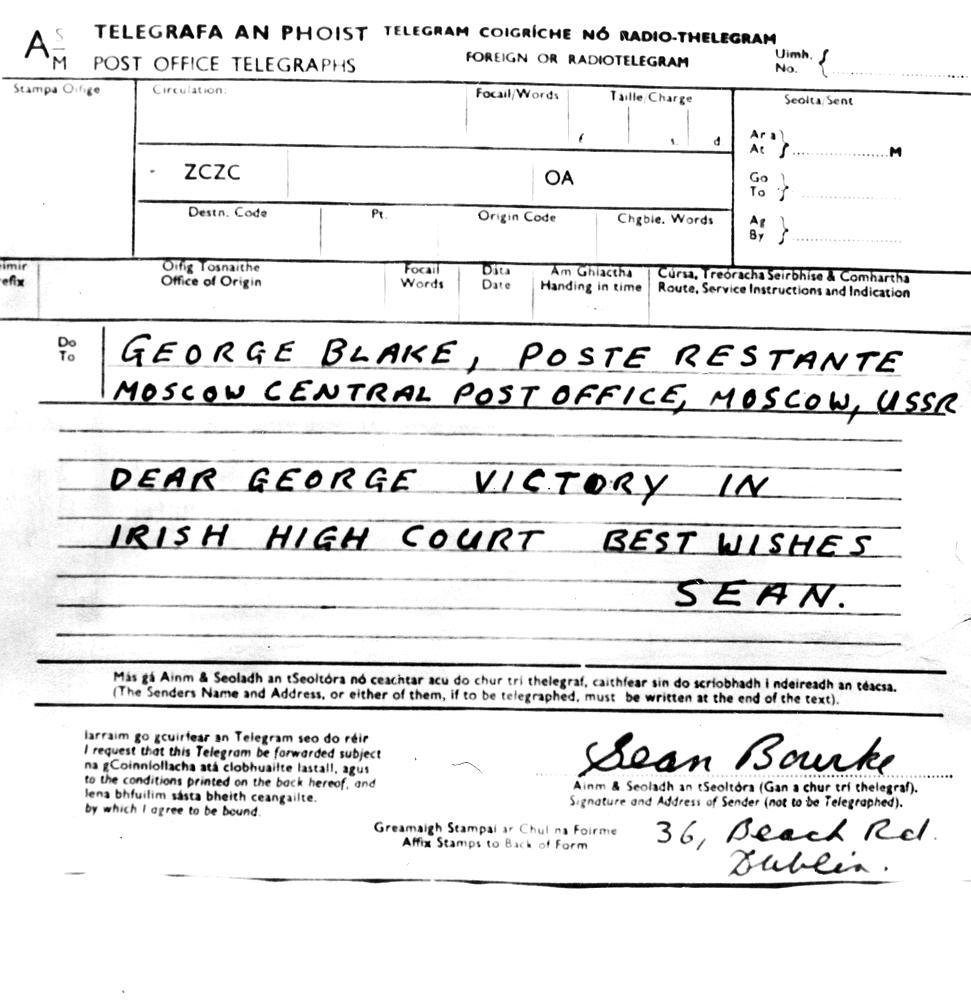 A S/M TELEGRAFA AN PHOIST TELEGRAM COIGRÍCHE NÓ RADIO-THELEGRAM
POST OFFICE TELEGRAPHS FOREIGN OR RADIOTELEGRAM
Uimh.
No.
Stampa Oifige Circulation: Focail/Words Taille/Charge Seolta/Sent
£ s. d.
Ar a
At M
ZCZC OA
Go
To
Destn. Code Pt. Origin Code Chgble. Words
Ag
By
Oifig Tosnaithe Focail Dáta Am Ghlactha Cúrsa, Treoracha Seirbhíse & Comhartha
Office of Origin Words Date Handing in time Route, Service Instructions and Indication
Do
To
GEORGE BLAKE, POSTE RESTANTE
MOSCOW CENTRAL POST OFFICE, MOSCOW, USSR
DEAR GEORGE VICTORY IN
IRISH HIGH COURT BEST WISHES
SEAN.
Más gá Ainm & Seoladh an tSeoltóra nó ceachtar acu do chur trí thelegraf, caithfear sin do scríobhadh i ndeireadh an téacsa.
(The Senders Name and Address, or either of them, if to be telegraphed, must be written at the end of the text).
Iarraim go gcuirfear an Telegram seo do réir
I request that this Telegram be forwarded subject
na gCoinníollacha atá clobhuailte lastall, agus
to the conditions printed on the back hereof, and
lena bhfuilim sásta bheith ceangailte.
by which I agree to be bound.
Sean Bourke
Ainm & Seoladh an tSeoltóra (Gan a chur trí thelegraf).
Signature and Address of Sender (not to be Telegraphed).
Greamaigh Stampaí ar Chúl na Foirme
Affix Stamps to Back of Form
36, Beach Rd.
Dublin.